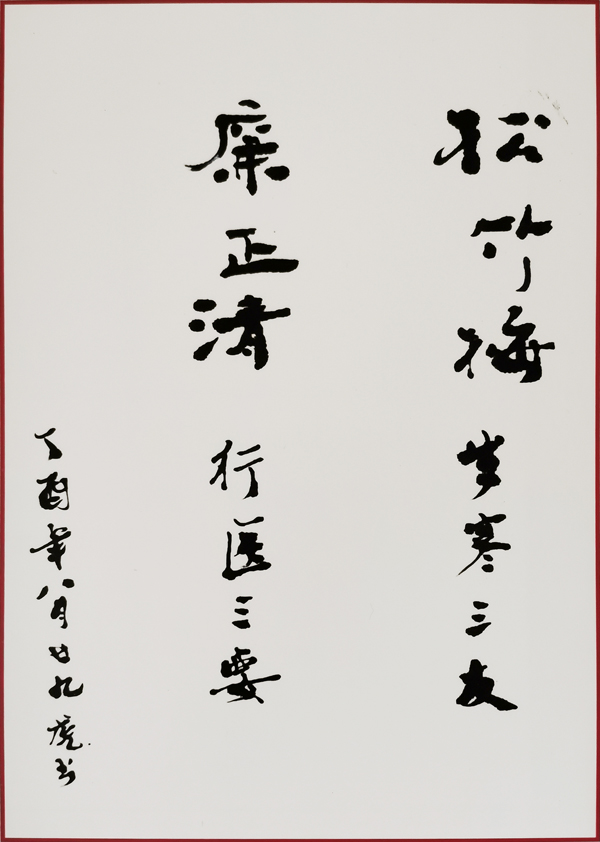 松竹梅岁寒三友
廉正清行医三要
丁酉年八月廿九虎书